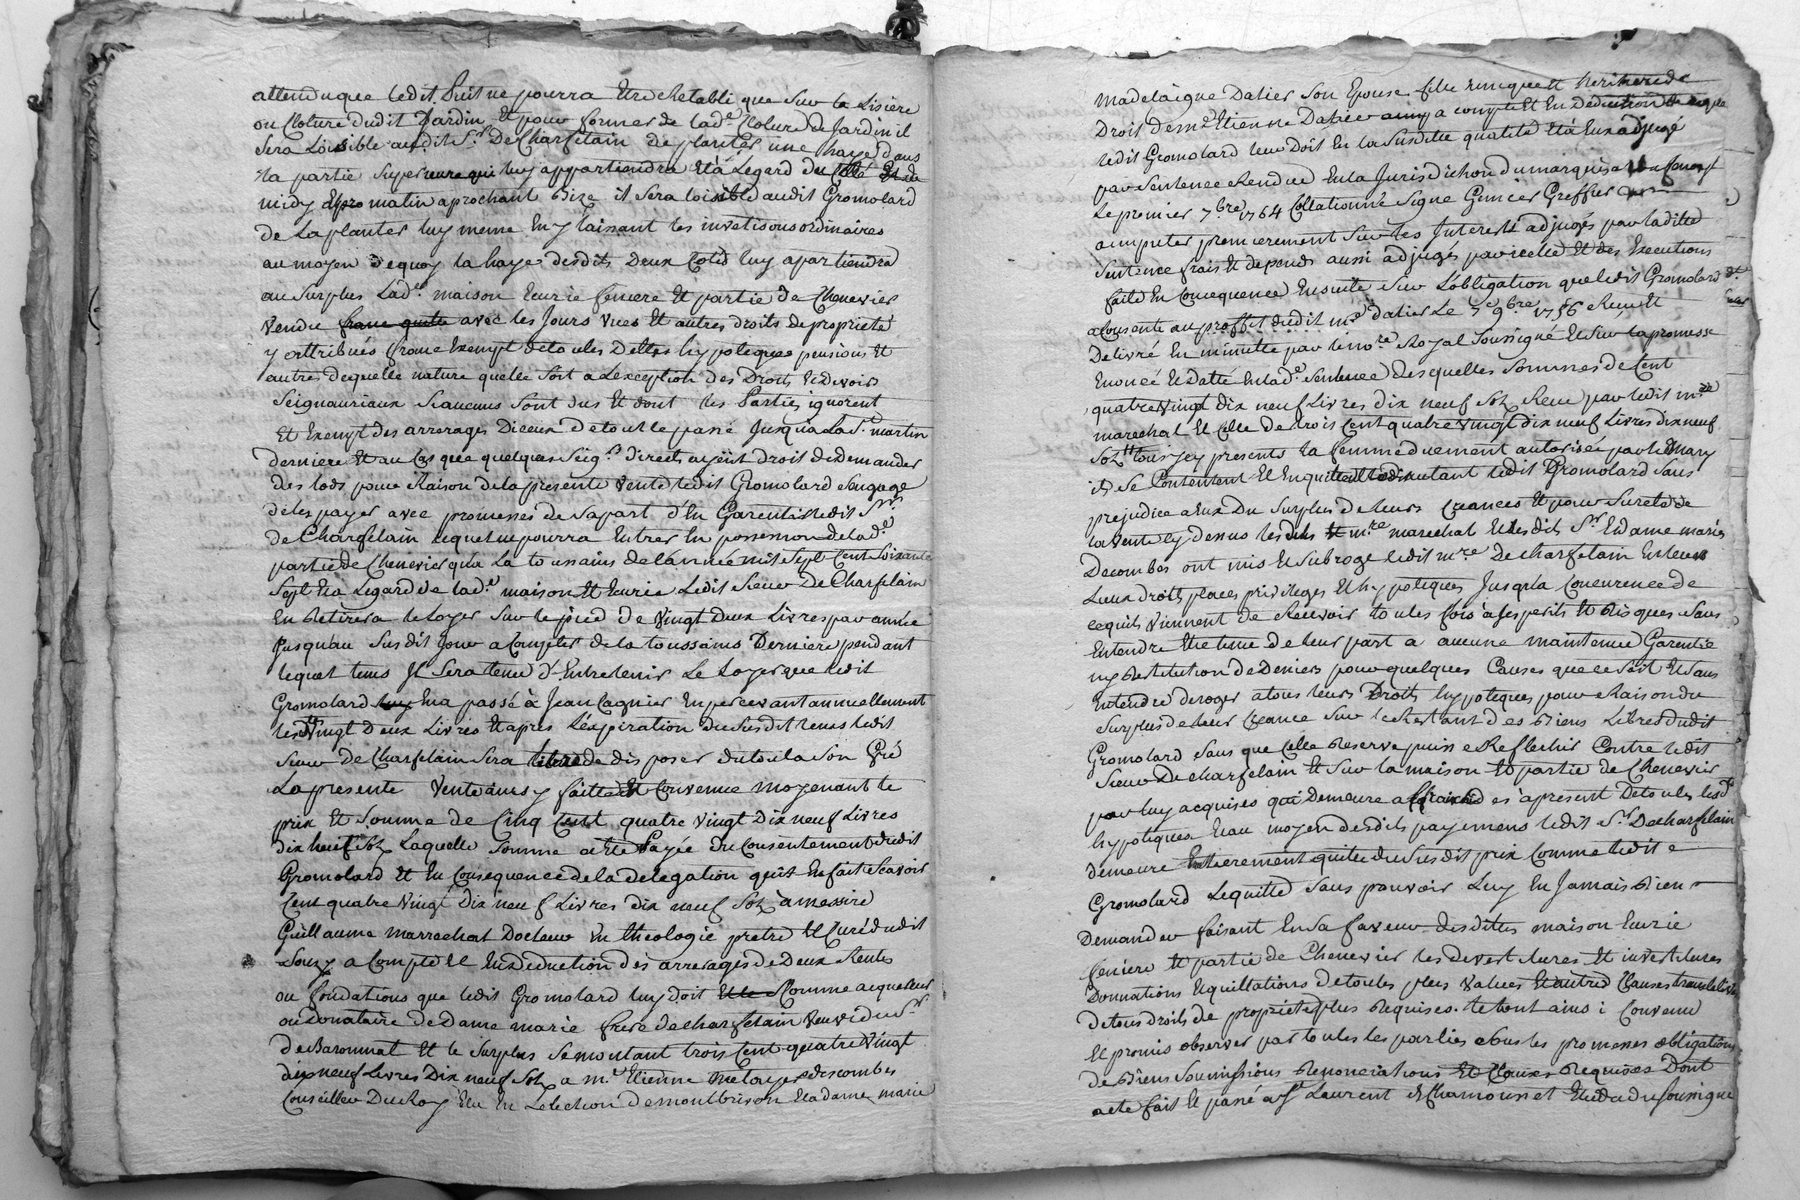 attenduque ledit Puit ne pourra Etre Retabli que Sur la Lisiere
ou Cloture dudit Jardin, Et pour former de lade Cloture de Jardin il
Sera Loisible audit Sr. De Charfetain de planter une haye dans
la partie Superieure qui luy appartiendra Et à Legard du Coté Et de
midy Et pro matin aprochant Bize il Sera loisible audit Gromolard
de La planter luy meme En y laissant les invetisons ordinaires
au moyen dequoy la haye desdits Deux Cotés luy apartiendra
au Surplus Lade. maison Ecurie feniere Et partie de Chenevier
vendu franc quitte avec les Jours vues Et autres droits de proprieté
y attribués franc Exempt de toutes Dettes hypoteques pensions Et
autres dequelle nature quelle Soit a Lexception des Droits Et devoirs
Seignauriaux Si aucuns Sont dus Et dont les Parties ignorent
Et Exempt des arrerages Diceux de tout le passé Jusqu'a La St. martin
derniere Et au Cas que quelques Seigrs. directs ayent droit de demander
des lods pour Raison de la presente vente ledit Gromolard Sengage
de les payer avec promesses de Sa part d'En Garentir ledit Sr.
de Charfetain lequel ne pourra Entrer En possession de lade
partie de Chenevier qu'a La toussains de lannée mil Sept Cent Soixante
Sept Et a Legard de lade. maison Et Ecurie Ledit Sieur De Charfetain
En Retirera le Loyer Sur le pied de Vingt Deux Livres par année
Jusqu'au Susdit Jour a Compter de la toussains Derniere pendant
lequel tems Il Sera tenu d'Entretenir Le Loyer que ledit
Gromolard En a passé à Jean Cagnier En percevant annuellement
lesdts Vingt Deux Livres Et apres L'expiration du Susdit tems ledit
Sieur De Charfetain Sera libre de disposer du tout a Son Gré
La presente Vente ainsy faitte Et Convenue moyenant le
prix Et Somme de Cinq Cent quatre Vingt Dix neuf Livres
dix neuf Sols Laquelle Somme a Eté Payée du Consentement dudit
Gromolard Et En Consequence de la delegation qu'il En fait Scavoir
Cent quatre Vingt Dix neuf Livres dix neuf Sols à messire
Guillaume Marrechat Docteur En theologie pretre Et Curé dudit
Souzy a Compte Et En Deduction des arrerages de Deux Rentes
ou fondations que ledit Gromolard luy doit Comme acquereur
ou Donataire de Dame marie frere de charfetain Veuve du Sr
de Baronnat Et le Surplus Se montant trois Cent quatre Vingt
dix neuf Livres Dix neuf Sols a mr. Etienne descombes
Conseiller Du Roy Elu En Lelection De montbrison Et a dame marie
Madelaigne Datier Son Epouse fille Et heritiere de
Droit De me Etienne Datier a compte Et En Deduction de ce que
ledit Gromolard leur Doit En la Susditte qualité Et à Eux adjugé
par Sentence Rendue En la Jurisdiction du marquisat
Le premier 7bre 1764 Collationné Signé Greffier
a imputer premierement Sur les Interest adjugés par laditte
Sentence frais Et depends aussi adjugés par icelle Et des Executions
faites En Consequence Ensuite Sur L'obligation que ledit Gromolard
a Consenti au proffit dudit me datier Le 7e 9bre 1756 Recu Et
Delivré En minutte par le nore Royal Soussigné Et Sur la promesse
Enoncé Et datté En lade. Sentence Desquelles Sommes de Cent
quatre Vingt dix neuf Livres dix neuf Sols Recu par ledit mre
marechat Et Celle de trois Cent quatre Vingt Dix neuf Livres Dix neuf
Sols tous Icy presents la femme duement autorisée par le mary
ils Se Contentent Et En quittent dautant ledit Gromolard Sans
prejudice a Eux Du Surplus de leurs Creances Et pour Sureté de
la vente Cy dessus ledit mre marechal Et lesdits Sr Et dame marié
Decombes ont mis Et Subrogé ledit mre De Charfetain En leurs
Lieux droits places privileges Et hypoteques Jusqu'a Concurrence de
ce quils Viennent de Recevoir toutes fois à Ses perils Et Risques Sans
Entendre Etre tenu de leur part a aucune maintenue Garentie
ny Restitution de Deniers pour quelques Causes que ce Soit Et Sans
Entendre deroger a tous leurs Droits hypoteques pour Raison du
Surplus de leur Creance Sur le Restant des Biens Libres dudit
Gromolard Sans que Celle Reserve puisse Reflechir Contre ledit
Sieur De charfetain Et Sur la maison Et partie de Chenevier
par luy acquises qui Demeure a franchi des à present De toutes lesdts
hypoteques Et au moyen desdits payemens ledit Sr Decharfetain
demeure Entierement quitte du Susdit prix Comme ledit
Gromolard Lequitte Sans pouvoir Luy En Jamais Rien
Demander faisant En Sa faveur desdittes maison Ecurie
feniere Et partie de Chenevier les devestitures Et investitures
Donnations Et quittations de toutes plus values Et autres Clauses translatives
de tous droits de propriété plus Requises. le tout ainsi Convenu
Et promis observer par toutes les parties Sous les promesses obligations
de Biens Soumissions Renonciations Et Clauses Requises Dont
acte fait Et passé a St Laurent de Chamousset Etude du Soussigné